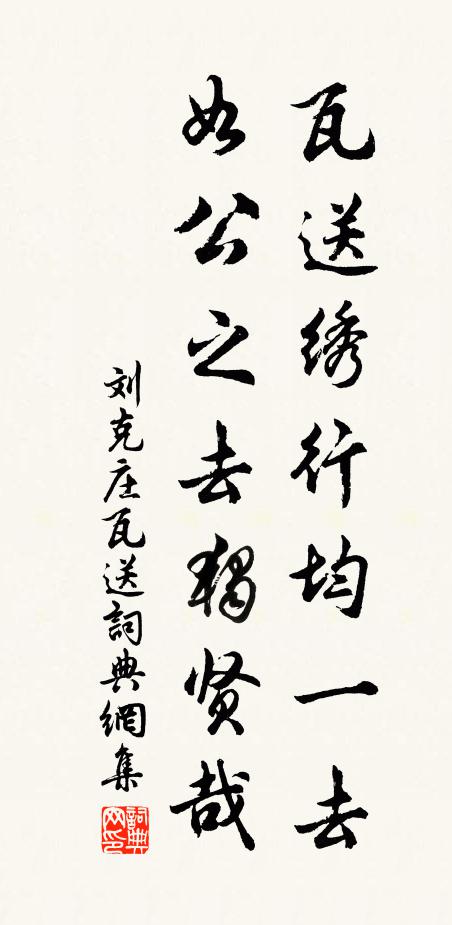 瓦送绣行均一去
如公之去独贤哉
刘克庄瓦送詞典網集
詞典网印